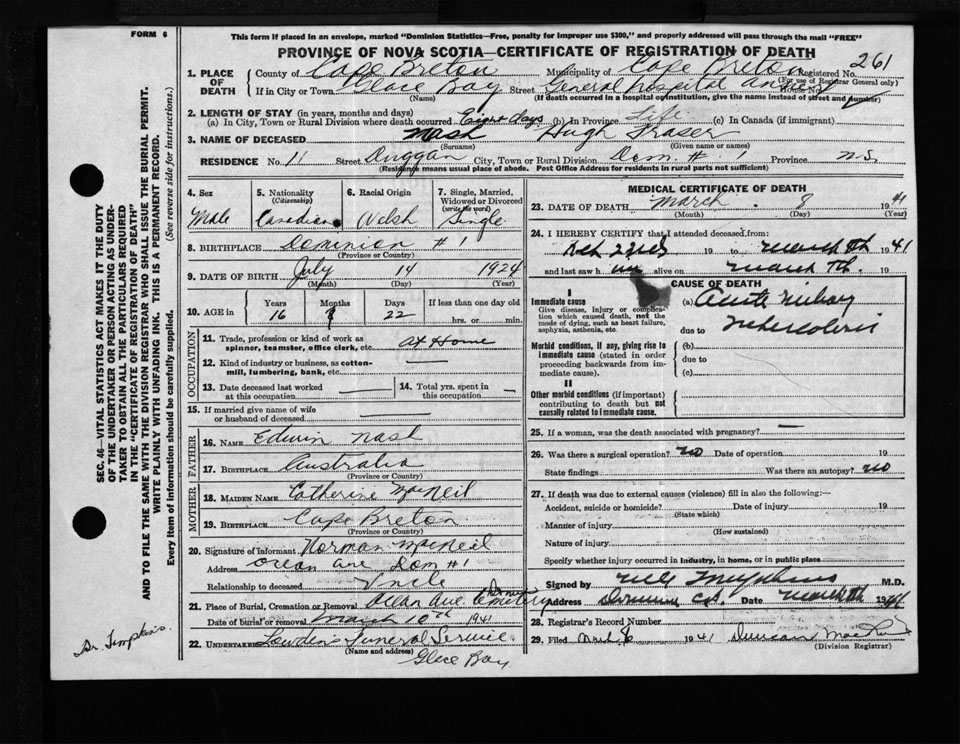 FORM 6
This form if placed in an envelope, marked "Dominion Statistics—Free, penalty for improper use $300," and properly addressed will pass through the mail "FREE"
PROVINCE OF NOVA SCOTIA—CERTIFICATE OF REGISTRATION OF DEATH
261
1. PLACE OF DEATH
County of Cape Breton Municipality of Cape Breton Registered No.
(For use of Registrar General only)
If in City or Town Glace Bay Street General Hospital House No.
(Name) (If death occurred in a hospital or institution, give the name instead of street and number)
2. LENGTH OF STAY (in years, months and days)
(a) In City, Town or Rural Division where death occurred Eight days (b) In Province Life (c) In Canada (if immigrant)
3. NAME OF DECEASED Nash Hugh Fraser
(Surname) (Given name or names)
RESIDENCE No. 11 Street Duggan City, Town or Rural Division Dom. # 1 Province N.S.
(Residence means usual place of abode. Post Office Address for residents in rural parts not sufficient)
4. Sex Male
5. Nationality (Citizenship) Canadian
6. Racial Origin Welsh
7. Single, Married, Widowed or Divorced (write the word) Single
8. BIRTHPLACE Dominion # 1
(Province or Country)
9. DATE OF BIRTH July 14 1924
(Month) (Day) (Year)
10. AGE in Years 16 Months Days 22 If less than one day old hrs. or min.
OCCUPATION
11. Trade, profession or kind of work as spinner, teamster, office clerk, etc. at Home
12. Kind of industry or business, as cotton-mill, lumbering, bank, etc.
13. Date deceased last worked at this occupation
14. Total yrs. spent in this occupation
15. If married give name of wife or husband of deceased
FATHER
16. NAME Edwin Nash
17. BIRTHPLACE Australia
(Province or Country)
MOTHER
18. MAIDEN NAME Catherine MacNeil
19. BIRTHPLACE Cape Breton
(Province or Country)
20. Signature of informant Norman MacNeil
Address Ocean Ave Dom # 1
Relationship to deceased Uncle
21. Place of Burial, Cremation or Removal Ocean Ave. Cemetery
Date of burial or removal March 10th 1941
22. UNDERTAKER Funeral Service
(Name and address)
Glace Bay
MEDICAL CERTIFICATE OF DEATH
23. DATE OF DEATH March 8 1941
(Month) (Day) (Year)
24. I HEREBY CERTIFY that I attended deceased from:
19 to March 8th 1941
and last saw h im alive on March 7th 19
CAUSE OF DEATH
I
Immediate cause
Give disease, injury or complication which caused death, not the mode of dying, such as heart failure, asphyxia, asthenia, etc.
(a) Acute Miliary
due to Tuberculosis
Morbid conditions, if any, giving rise to immediate cause (stated in order proceeding backwards from immediate cause).
(b)
due to
(c)
II
Other morbid conditions (if important) contributing to death but not causally related to immediate cause.
25. If a woman, was the death associated with pregnancy? —
26. Was there a surgical operation? no Date of operation 19
State findings Was there an autopsy? no
27. If death was due to external causes (violence) fill in also the following:—
Accident, suicide or homicide? Date of injury 19
(State which)
Manner of injury
(How sustained)
Nature of injury
Specify whether injury occurred in industry, in home, or in public place
Signed by M.D.
Address Date March 8th 1941
28. Registrar's Record Number
29. Filed March 8 1941 Duncan
(Division Registrar)
SEC. 46—VITAL STATISTICS ACT MAKES IT THE DUTY
OF THE UNDERTAKER OR PERSON ACTING AS UNDERTAKER
TO OBTAIN ALL THE PARTICULARS REQUIRED
IN THE "CERTIFICATE OF REGISTRATION OF DEATH"
AND TO FILE THE SAME WITH THE DIVISION REGISTRAR WHO SHALL ISSUE THE BURIAL PERMIT.
WRITE PLAINLY WITH UNFADING INK. THIS IS A PERMANENT RECORD.
Every item of information should be carefully supplied. (See reverse side for instructions.)
Dr. Tompkins.